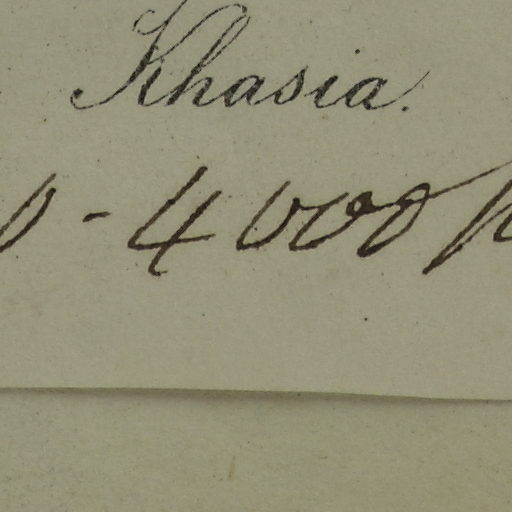 Khasia.
0 - 4000